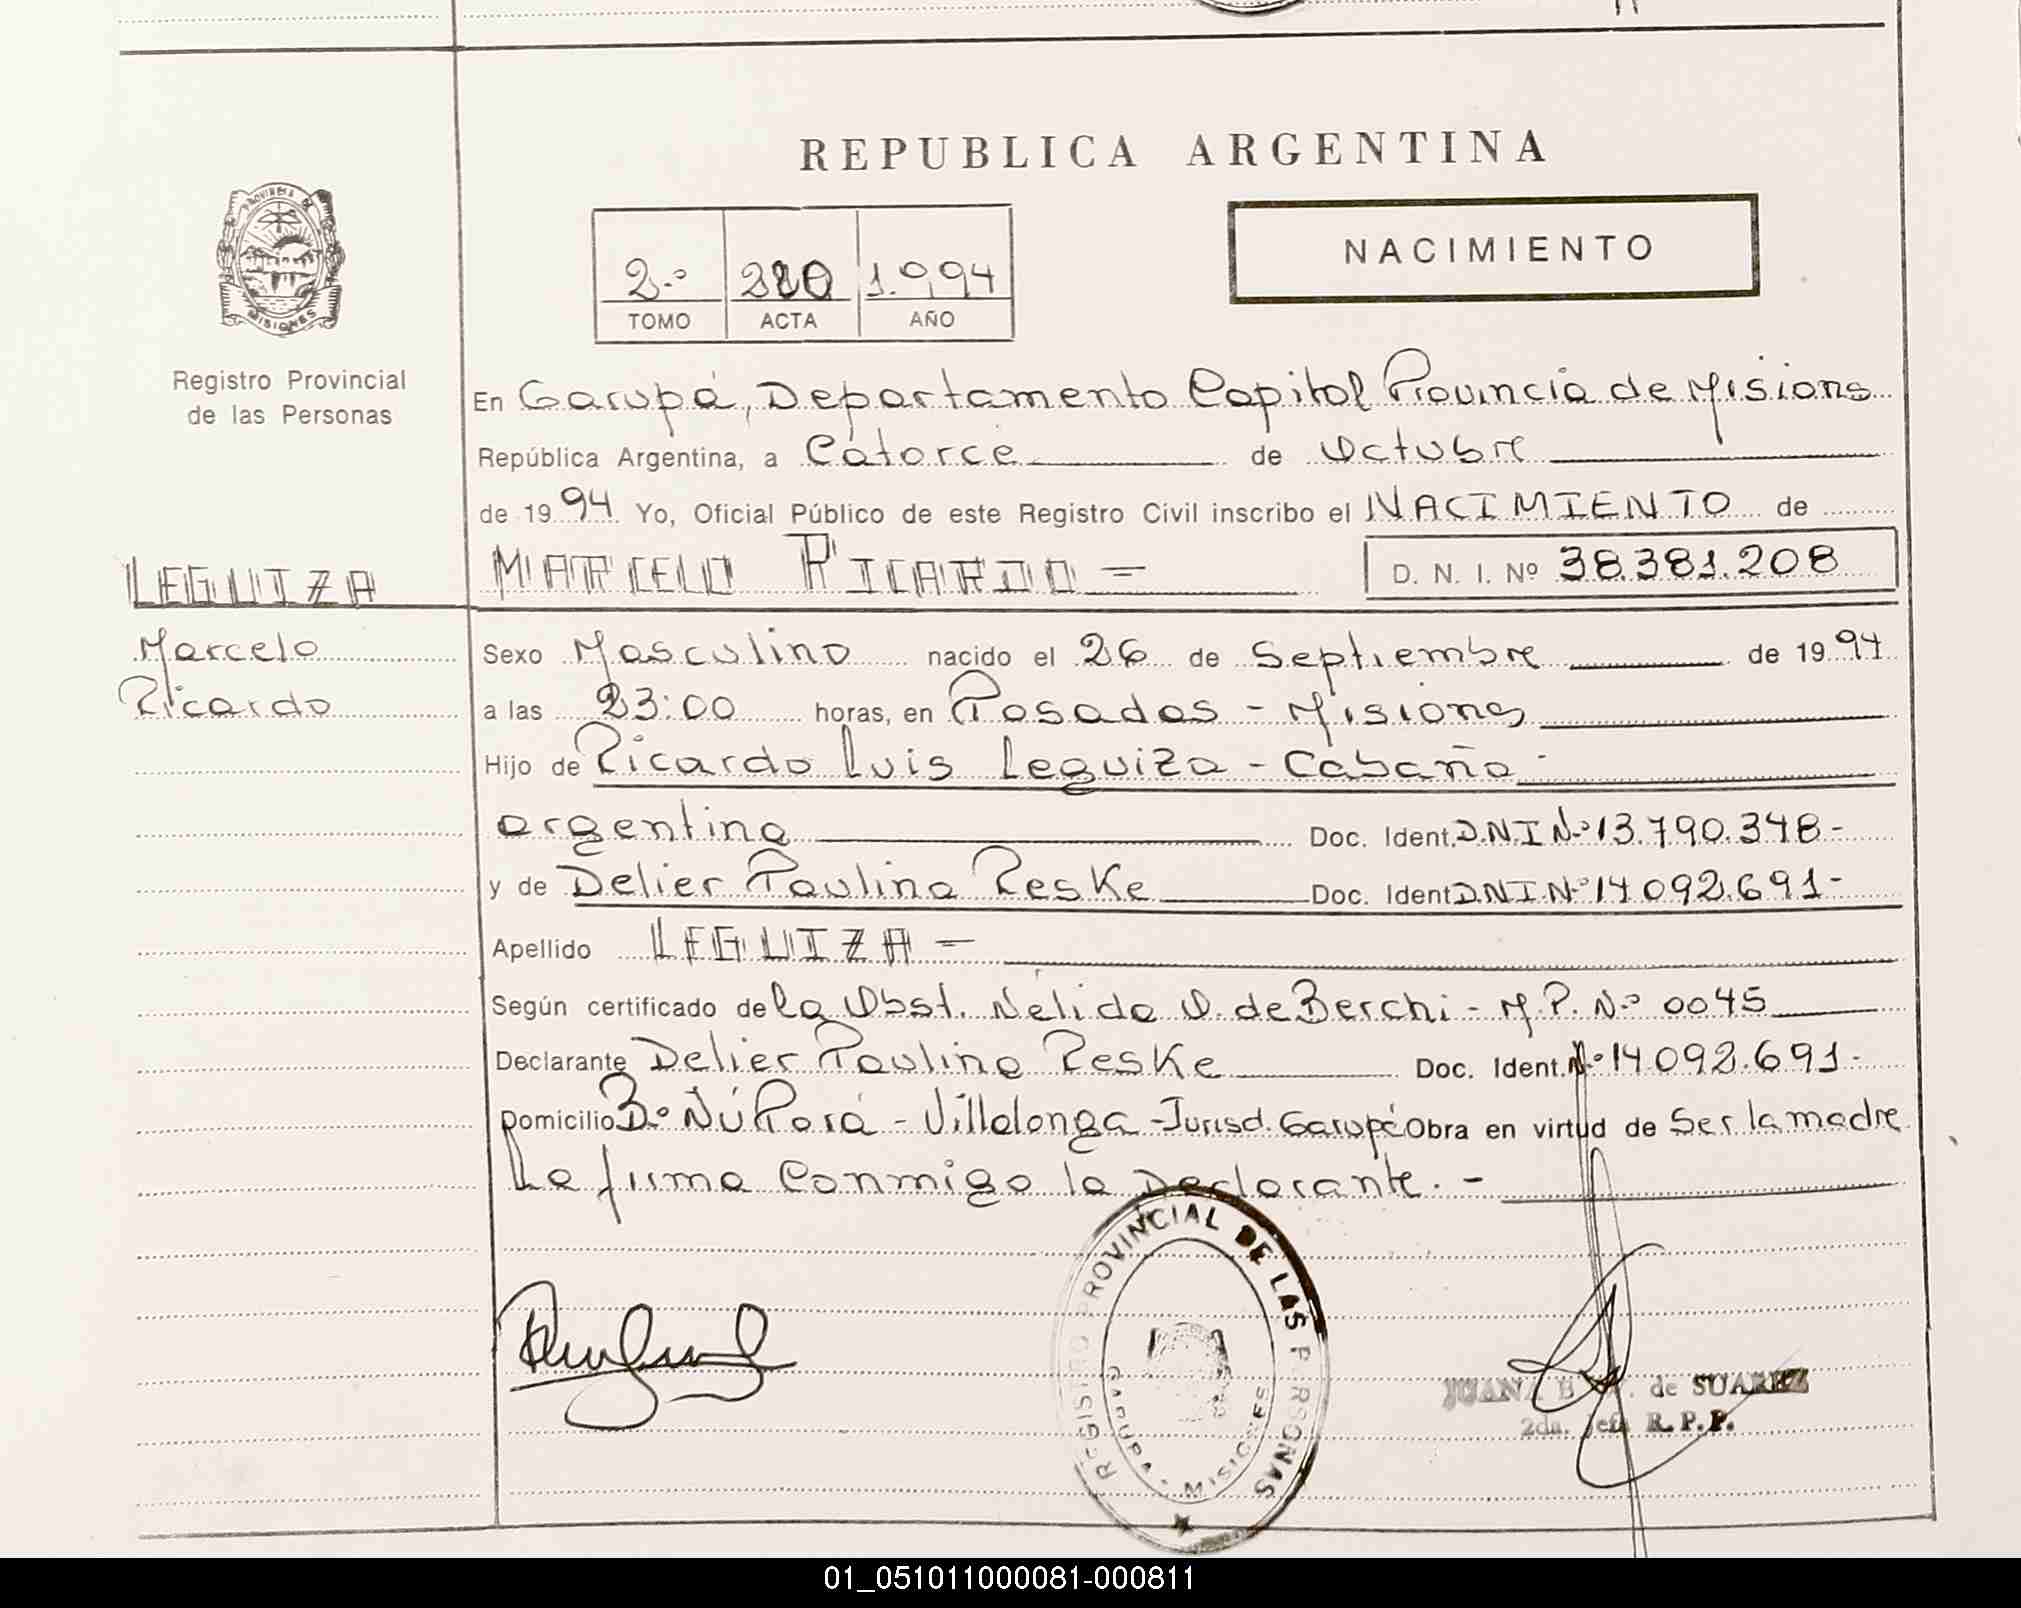 REPUBLICA ARGENTINA
NACIMIENTO
2.º 1.994
TOMO ACTA AÑO
PROVINCIA DE
MISIONES
Registro Provincial
de las Personas
En Garupá, Departamento Capital Provincia de Misiones
República Argentina, a Catorce de Octubre
de 1994 Yo, Oficial Público de este Registro Civil inscribo el NACIMIENTO de
LEGUIZA MARCELO RICARDO = D. N. I. Nº 38.381.208
Marcelo
Ricardo
Sexo Masculino nacido el 26 de Septiembre de 1994
a las 23:00 horas, en Posadas - Misiones
Hijo de Ricardo Luis Leguiza - Cabaña -
argentina Doc. Ident. D.N.I Nº 13.790.348-
y de Delier Paulina Reske Doc. Ident D.N.I. Nº 14.092.691-
Apellido LEGUIZA =
Según certificado de la Obst. Nélida O. de Berchi - M.P. Nº 0045
Declarante Delier Paulina Reske Doc. Ident. Nº 14.092.691-
Domicilio Bº Ñú Porá - Villalonga - Jurisd. Garupá Obra en virtud de Ser la madre
La firma Conmigo la Declarante. -
REGISTRO PROVINCIAL DE LAS PERSONAS
GARUPA - MISIONES
JUANA de SUAREZ
2da. Jefa R.P.P.
01_051011000081-000811